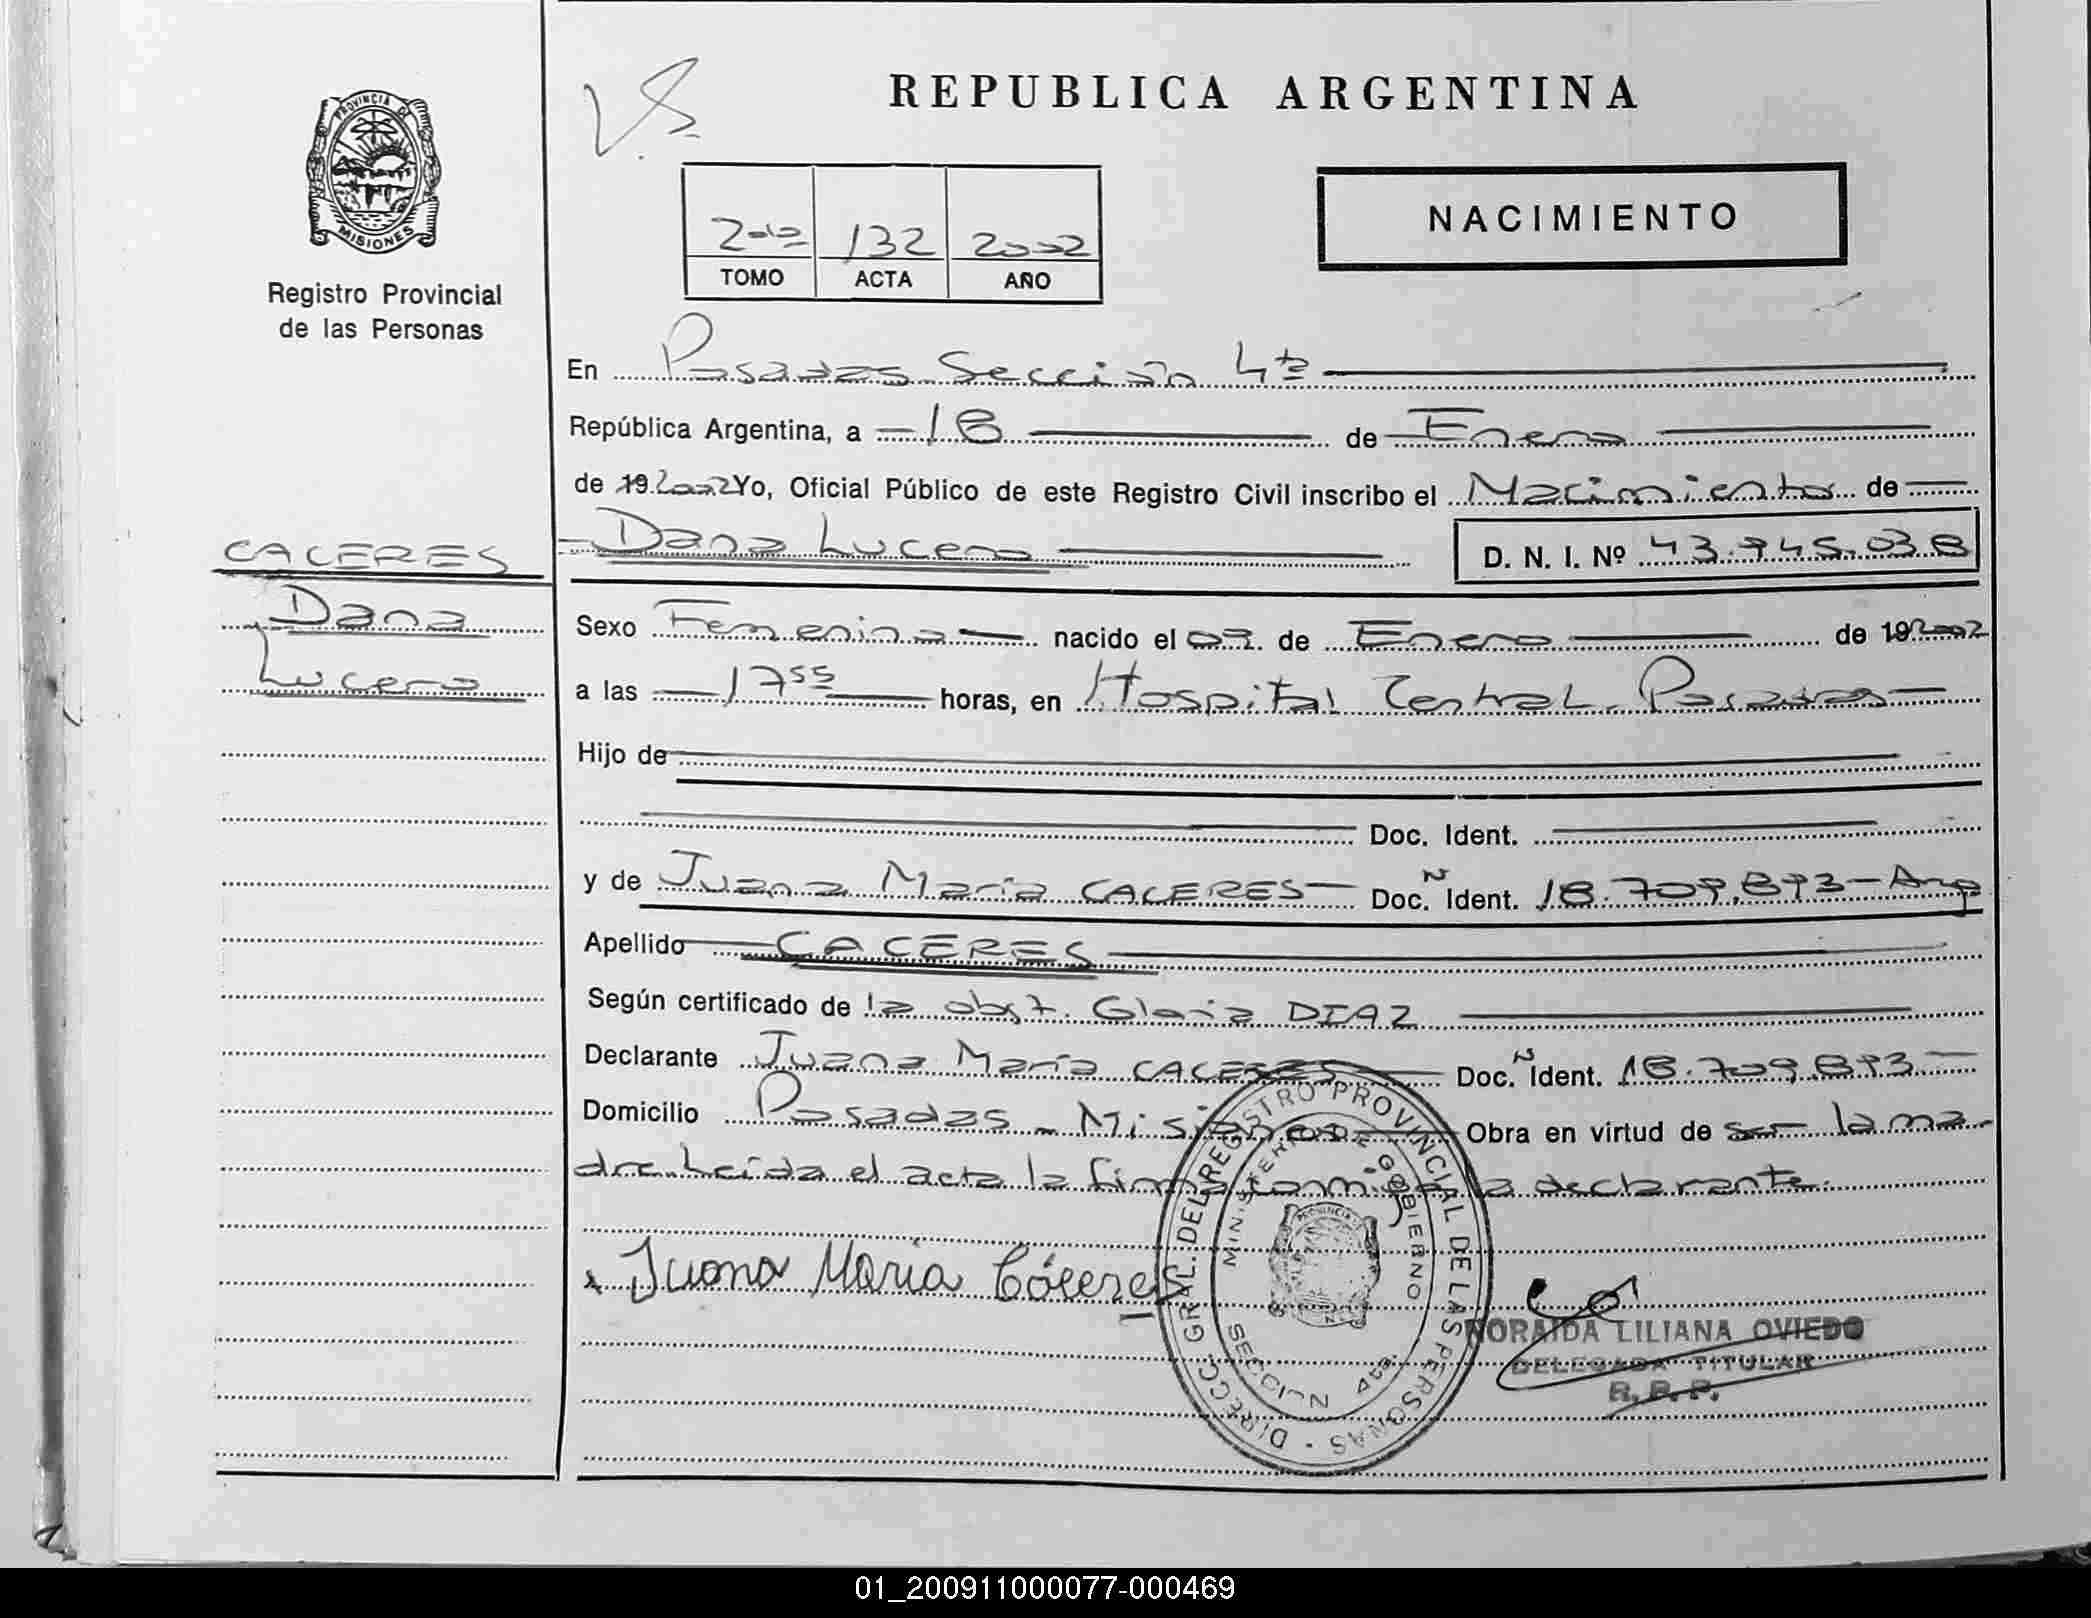 PROVINCIA DE
MISIONES
Registro Provincial
de las Personas
REPUBLICA ARGENTINA
NACIMIENTO
2do 132 2002
TOMO ACTA AÑO
En Posadas Sección 4ta
República Argentina, a 18 de Enero
de 19 2002 Yo, Oficial Público de este Registro Civil inscribo el Nacimiento de
CACERES
Dana Lucero D. N. I. Nº 43.745.038
Dana
Lucero
Sexo Femenino nacido el 07 de Enero de 19 2002
a las 17 55 horas, en Hospital Central. Posadas
Hijo de
Doc. Ident.
y de Juana María CACERES Doc. N Ident. 18.709.893 - Arg
Apellido CACERES
Según certificado de la obst. Gloria DIAZ
Declarante Juana María CACERES Doc. N Ident. 18.709.893
Domicilio Posadas - Misiones Obra en virtud de ser la ma-
dre. Leída el acta la firma conmigo la declarante.
x Juana María Cáceres
DIRECC. GRAL. DEL REGISTRO PROVINCIAL DE LAS PERSONAS
MINISTERIO DE GOBIERNO
SECCION 4ta.
NORAIDA LILIANA OVIEDO
DELEGADA TITULAR
R. P. P.
01_200911000077-000469